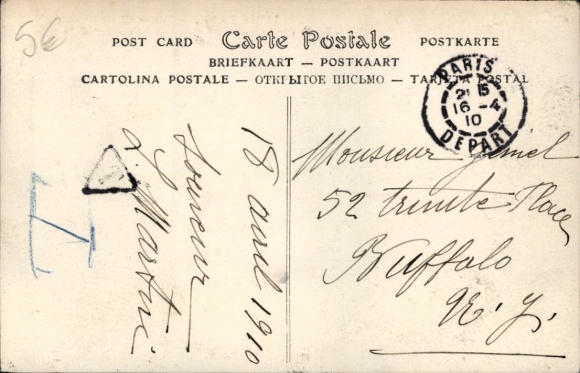 5€
POST CARD Carte Postale POSTKARTE
BRIEFKAART — POSTKAART
CARTOLINA POSTALE — ОТКРЫТОЕ ПИСЬМО — TARJETA POSTAL
PARIS
21 15
16 - 4
10
DEPART
Monsieur
52 trinité Place
Buffalo
N. Y.
18 avril 1910
Souvenir
L. Martin
T